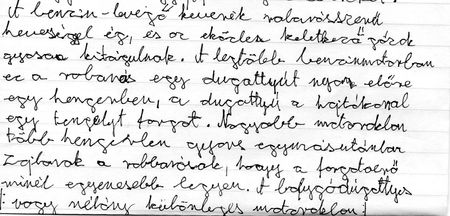 A benzin-levegő keverék robanásszerű
hevességgel ég, és az eközben keletkező gázok
gyorsan kitágulnak. A legtöbb benzinmotorban
ez a robanás egy dugattyút nyom előre
egy hengerben, a dugattyú a hajtókarral
egy tengelyt forgat. Nagyobb motorokban
több hengerben gyors egymásutánban
zajlanak a robbanások, hogy a forgatóerő
minél egyenesebb legyen. A
vagy néhány különleges motorokban